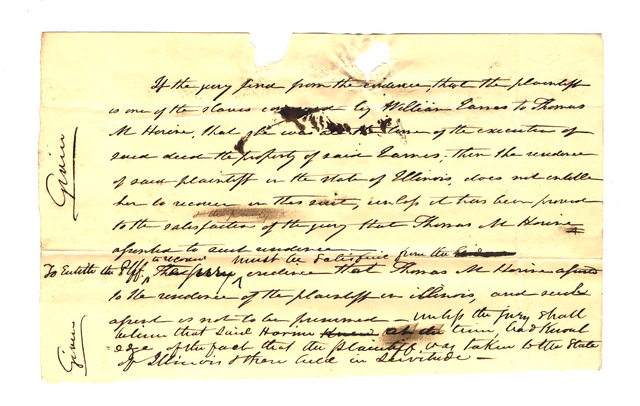 If the jury find from the evidence, that the plaintiff
is one of the slaves by William Eames to Thomas
M Horine, that she was at the time of the execution of
said deed the property of said Eames, then the residence
of said plaintiff in the state of Illinois, does not entitle
her to recover in this suit, unless it has been proved
to the satisfaction of the jury that Thomas M Horine
assented to such residence
To Entitle the Plff to recover The jury must be satisfied from the evidence that Thomas M Horine assented
to the residence of the plaintiff in illinois, and such
assent is not to be presumed — unless the jury shall
believe that said Horine knew at the time, had knowl
edge of the fact that the plaintiff was taken to the State
of Illinois & there held in servitude —
Given
Given